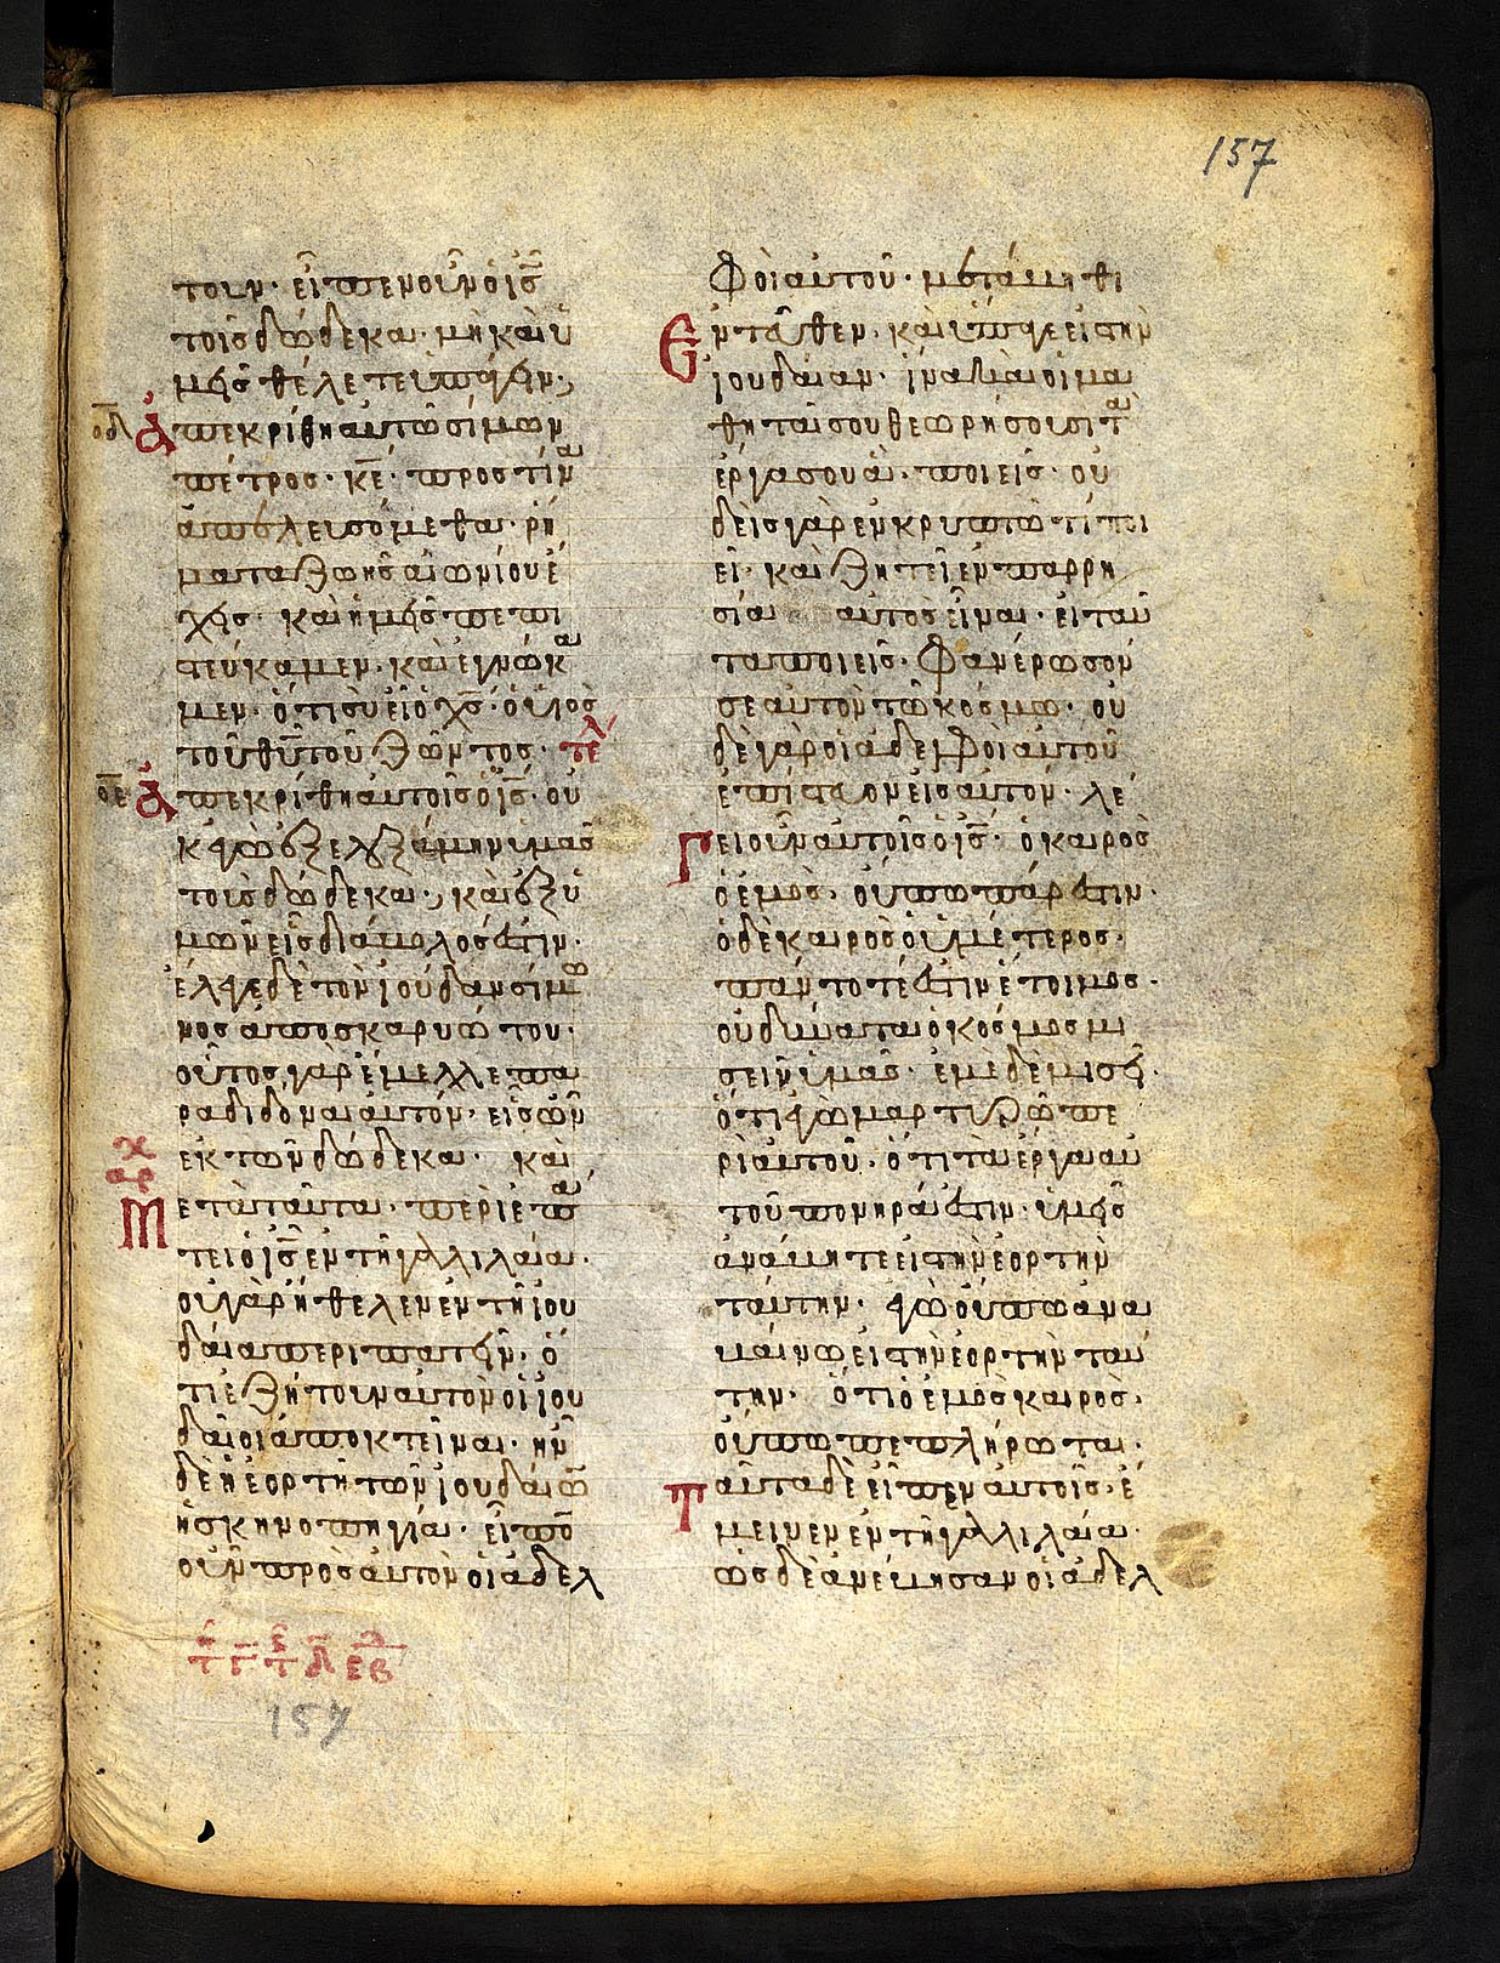 157
τουν· εἶπεν οὖν ὁ ις̅
τοῖς δώδεκα· μὴ καὶ ὑ
μεῖς θέλετε ὑπάγειν;
ο̅δ̅ ἀπεκρίθη αὐτῶ σίμων
πέτρος· κ̅ε̅· πρὸς τίνα
ἀπελευσόμεθα· ῥή
ματα ζωῆς αἰωνίου ἔ
χεις· καὶ ἡμεῖς πεπι
στεύκαμεν· καὶ ἐγνώκα
μεν· ὅτι σὺ εἶ ὁ χ̅ς̅· ὁ υἱὸς
τοῦ θ̅υ̅ τοῦ ζῶντος· τελ
ο̅ε̅ ἀπεκρίθη αὐτοῖς ὁ ις̅· οὐ
κ ἐγὼ ἐξελεξάμην ὑμᾶς
τοὺς δώδεκα; καὶ ἐξ ὑ
μῶν εἷς διάβολός ἐστιν·
ἔλεγε δὲ τὸν ἰούδαν σίμω
νος ἀπὸ σκαρυώτου·
οὗτος γὰρ ἔμελλε πα
ραδιδόναι αὐτόν· εἷς ὢν
ἐκ τῶν δώδεκα· καὶ
αρχ
μετὰ ταῦτα· περιεπα
τει ὁ ις̅ ἐν τῆ γαλιλαία·
οὐ γὰρ ἤθελεν ἐν τῆ ἰου
δαία περιπατεῖν· ὅ
τι ἐζήτουν αὐτὸν οἱ ἰου
δαῖοι ἀποκτεῖναι· ἦν
δὲ ἡ ἑορτὴ τῶν ἰουδαίω̅
ἡ σκηνοπηγία· εἶπο̅
οὖν πρὸς αὐτὸν οἱ ἀδελ
157
φοὶ αὐτοῦ· μετάβηθι
ἐντεῦθεν· καὶ ὕπαγε εἰς τὴν
ἰουδαίαν· ἵνα καὶ οἱ μα
θηταί σου θεωρήσουσι τὰ
ἔργα σου ἃ· ποιεῖς· οὐ
δεὶς γὰρ ἐν κρυπτῶ τι ποι
εῖ· καὶ ζητεῖ ἐν παρρη
σία αὐτὸς εἶναι· εἰ ταῦ
τα ποιεῖς· φανέρωσον
σεαυτὸν τῶ κόσμω· οὐ
δὲ γὰρ οἱ ἀδελφοὶ αὐτοῦ
ἐπίστευον εἰς αὐτόν· λέ
γει οὖν αὐτοῖς ὁ ις̅· ὁ καιρὸς
ὁ ἐμὸς· οὔπω πάρεστιν·
ὁ δὲ καιρὸς ὁ ὑμέτερος·
πάντοτέ ἐστιν ἕτοιμος·
οὐ δύναται ὁ κόσμος μι
σεῖν ὑμᾶς· ἐμὲ δὲ μισεῖ·
ὅτι ἐγὼ μαρτυρῶ πε
ρὶ αὐτοῦ· ὅτι τὰ ἔργα αὐ
τοῦ πονηρά ἐστιν· ὑμεῖς
ἀνάβητε εἰς τὴν ἑορτὴν
ταύτην· ἐγὼ οὔπω ἀνα
βαίνω εἰς τὴν ἑορτὴν ταύ
την· ὅτι ὁ ἐμὸς καιρὸς·
οὔπω πεπλήρωται·
ταῦτα δὲ εἰπὼν αὐτοῖς· ἔ
μεινεν ἐν τῆ γαλιλαία·
ὡς δὲ ἀνέβησαν οἱ ἀδελ